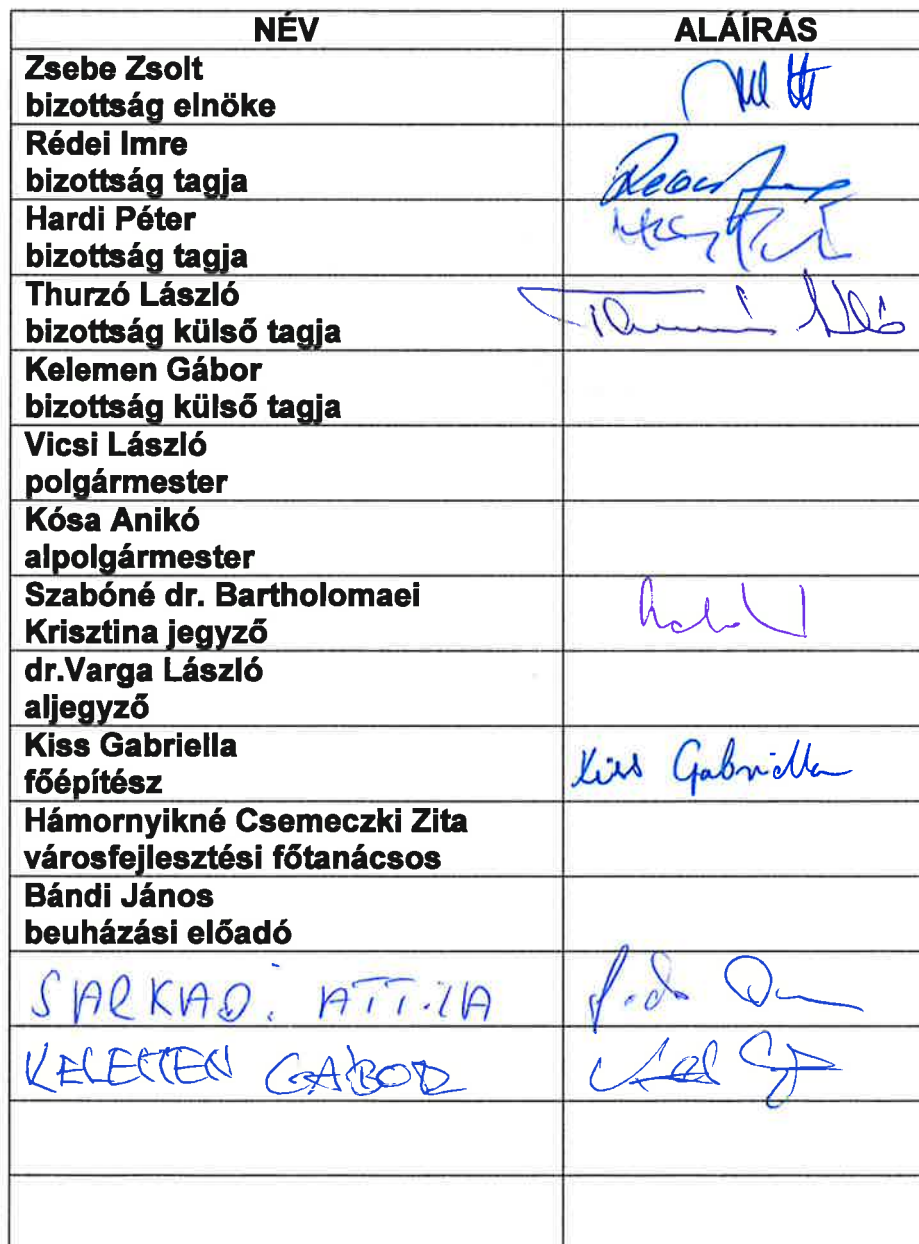 NÉV ALÁÍRÁS
Zsebe Zsolt
bizottság elnöke
Rédei Imre
bizottság tagja
Hardi Péter
bizottság tagja
Thurzó László
bizottság külső tagja
Kelemen Gábor
bizottság külső tagja
Vicsi László
polgármester
Kósa Anikó
alpolgármester
Szabóné dr. Bartholomaei
Krisztina jegyző
dr.Varga László
aljegyző
Kiss Gabriella
főépítész Kiss Gabriella
Hámornyikné Csemeczki Zita
városfejlesztési főtanácsos
Bándi János
beuházási előadó
SARKADI ATTILA
KELEMEN GÁBOR